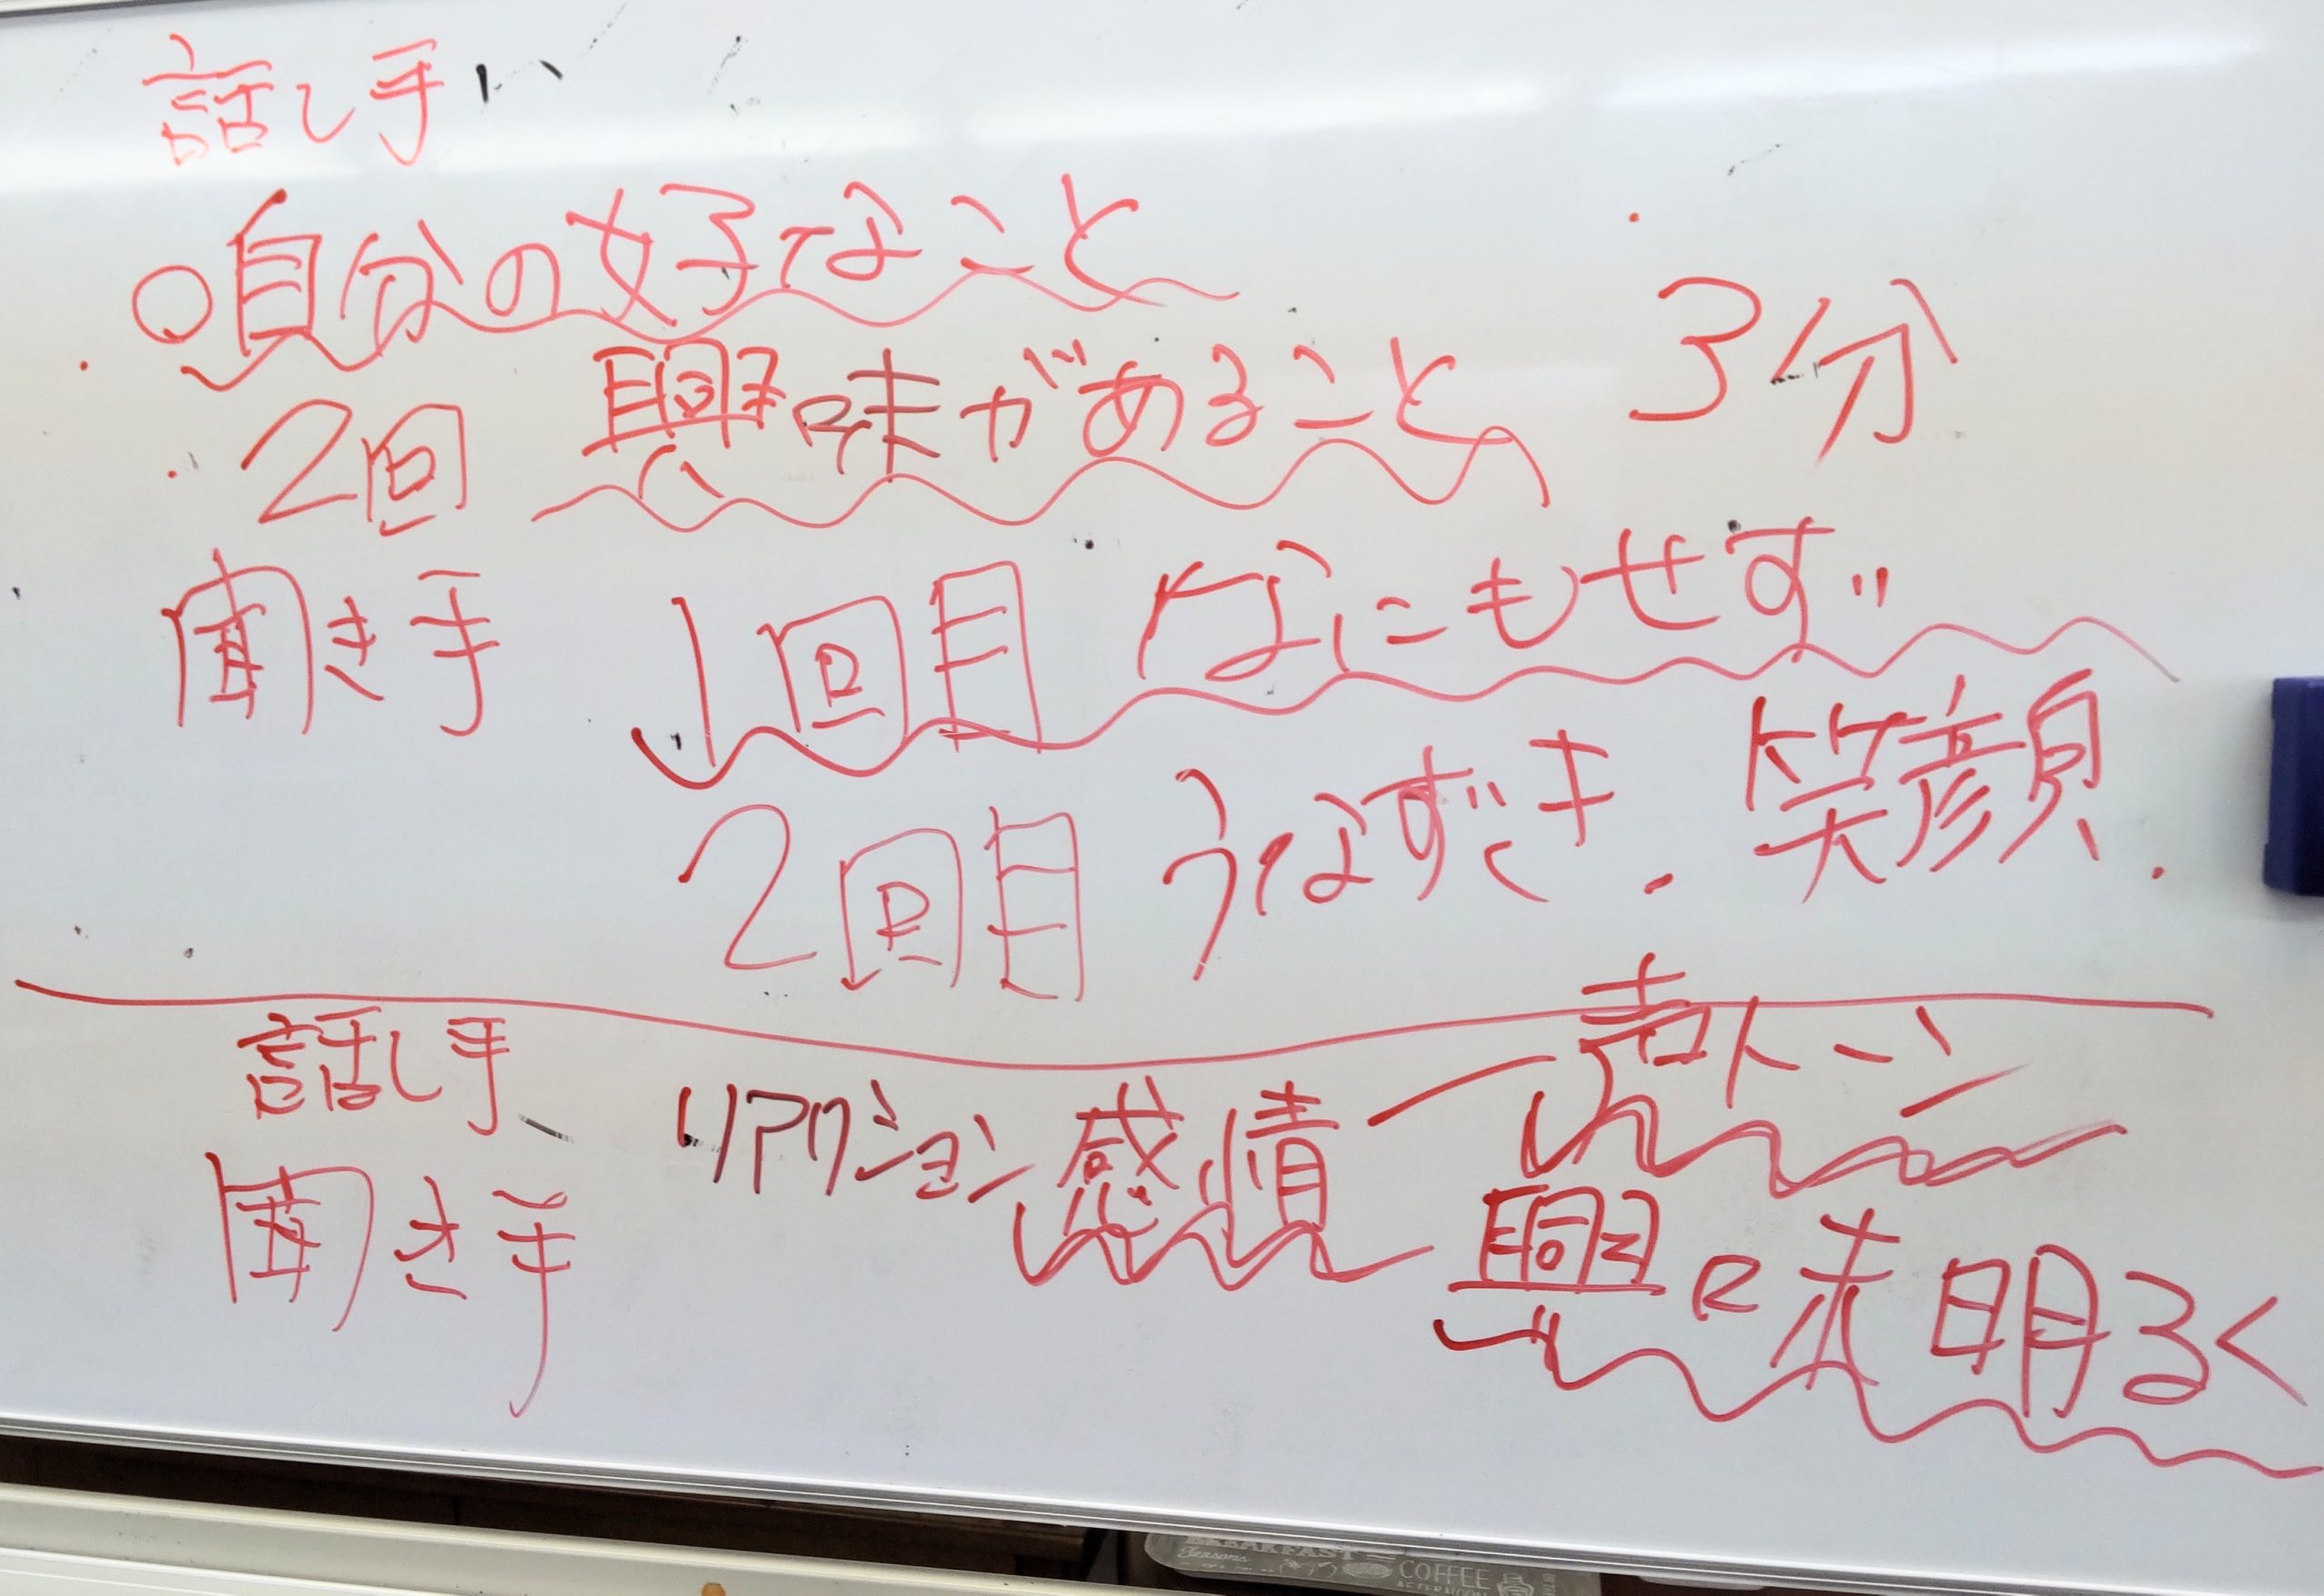 話し手
○自分の好なこと
2回 興味があること 3分
聞き手 1回目 なにもせず
2回目 うなずき．笑顔．
話し手 リアクション 感情 ー 声トーン
聞き手 興味 明るく
BREAKFAST
Seasons
COFFEE
AFTERNOON